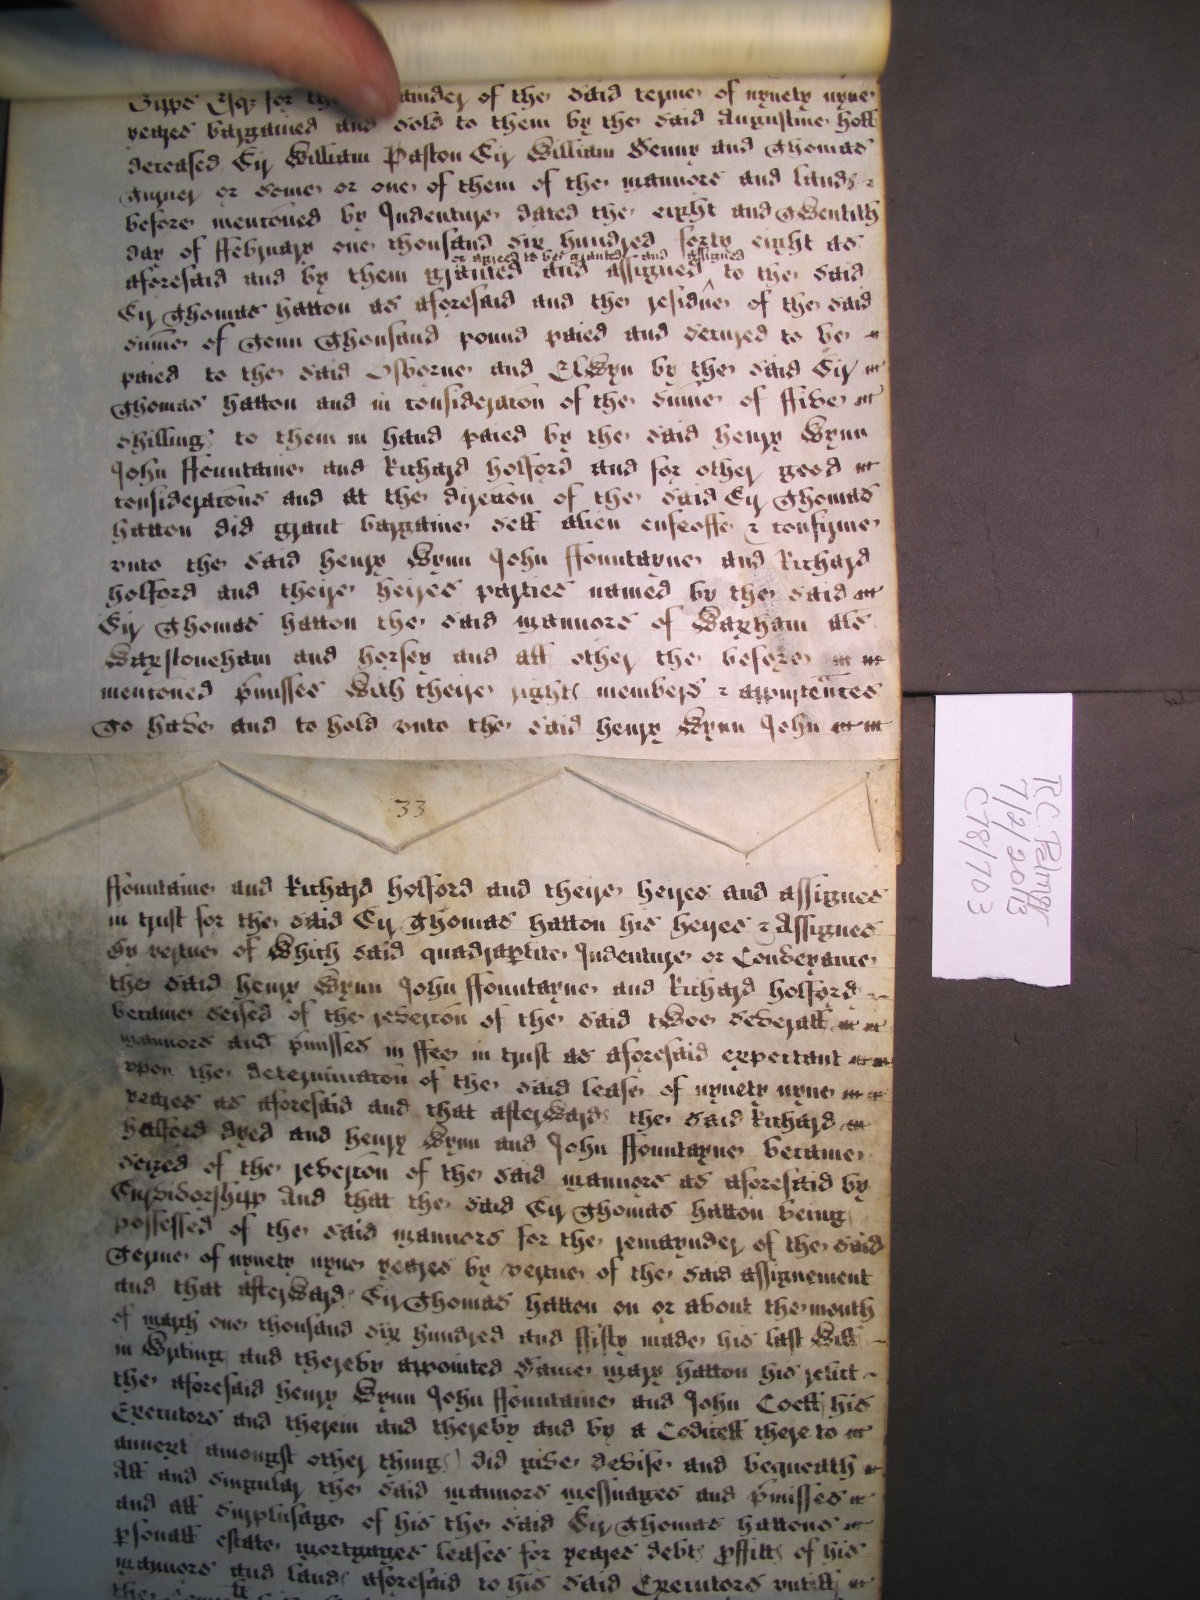 Cripps Esq for the remainder of the said terme of nynety nyne
yeares bargained and sold to them by the said Augustine holl
deceased Sir William Paston Sir William Denny and Thomas
Turner or some or one of them of the mannors and lands &
before mencioned by Indenture dated the eight and Twentith
day of ffebruary one thousand six hundred forty eight as
or agreed to bee granted and assigned
aforesaid and by them granted and assigned to the said
Sir Thomas hatton as aforesaid and the residue of the said
summe of Tenn Thousand pound paied and secured to be
paied to the said Osborne and Elwyn by the said Sir
Thomas hatton and in consideracon of the summe of ffive
shillings to them in hand paied by the said henry Wynn
John ffountaine and Richard holford and for other good
consideracons and at the direccon of the said Sir Thomas
hatton did grant bargaine sell alien enfeoffe & confirme
unto the said henry Wynn John ffountayne and Richard
holford and theire heires parties named by the said
Sir Thomas hatton the said mannors of Waxham als
Waxstoneham and horsey and all other the before
mencioned pmisses With theire rights members & appurtences
To have and to hold unto the said henry Wynn John
33
ffountaine and Richard holford and theire heires and assignes
in trust for the said Sir Thomas hatton his heires & Assignes
By vertue of Which said quadraptite Indenture or Conveyance
the said henry Wynn John ffountayne and Richard holford
became seised of the revercon of the said twoe severall
mannors and pmisses in ffee in trust as aforesaid expectant
upon the determinacon of the said lease of nynety nyne
yeares as aforesaid and that afterwards the said Richard
halford dyed and henry Wynn and John ffountayne became
seized of the revercon of the said mannors as aforesaid by
Survivorshipp And that the said Sir Thomas hatton being
possessed of the said mannors for the remaynder of the said
Terme of nynety nyne yeares by vertue of the said assignement
and that afterwards Sir Thomas hatton on or about the month
of march one thousand six hundred and ffifty made his last Will
in Wryting and thereby appointed Dame mary hatton his relict
the aforesaid henry Wynn John ffountaine and John Coell his
Executors and therein and thereby and by a Codicell there to
annext (amongst other things) did give devise and bequeath
All and singular the said mannors messuages and pmisses
and all surplusage of his the said Sir Thomas hattons
psonall estate mortgages leases for yeares debts pffitts of his
mannors and lands aforesaid to his said Executors untill
the
R.C. Palmer
7/2/2013
C78/703